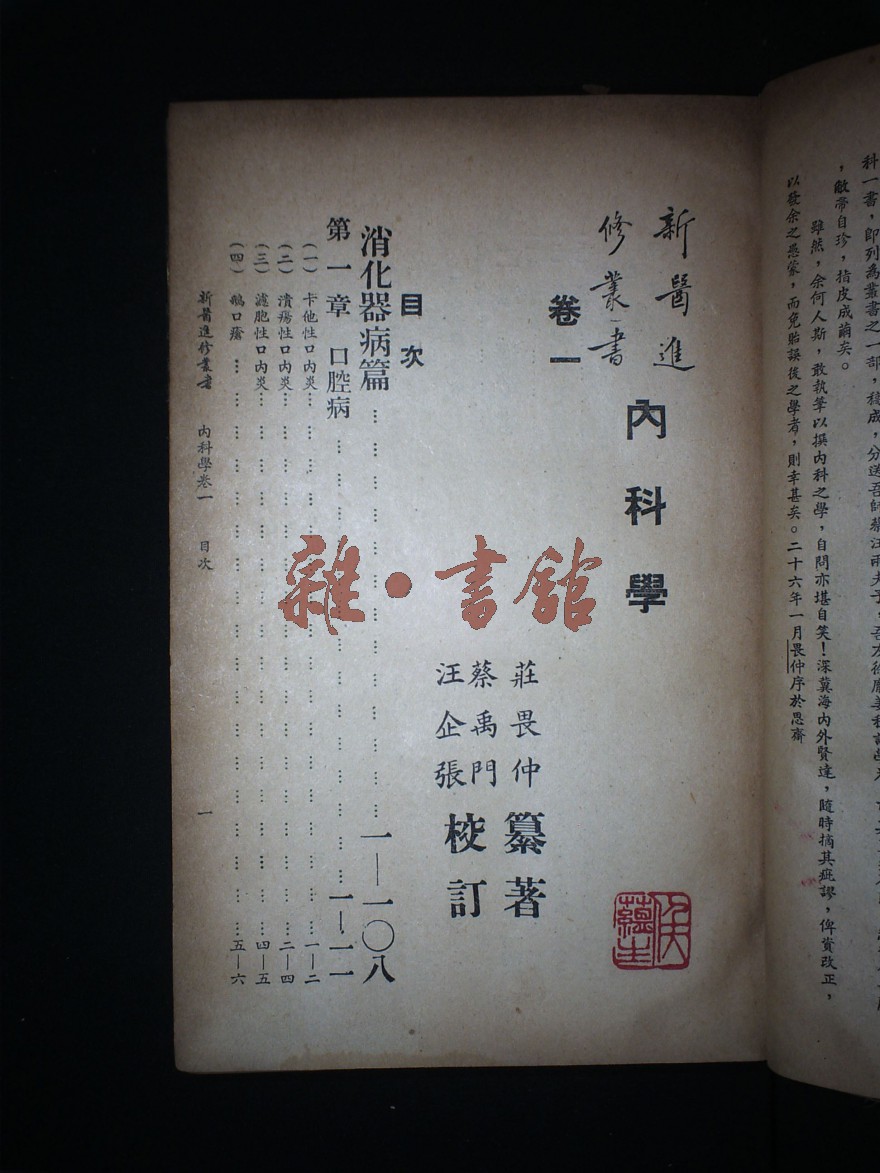 科一書，即列為叢書之一部，稿成，分送吾師蔡汪兩夫子，吾友
，敝帚自珍，指皮成繭矣。
雖然，余何人斯，敢執筆以撰內科之學，自問亦堪自笑！深冀海內外賢達，隨時摘其疵謬，俾資改正，
以發余之愚蒙，而免貽誤後之學者，則幸甚矣。二十六年一月畏仲序於思齋
新醫進
修叢書
內科學
卷一
莊畏仲 纂著
蔡禹門
汪企張 校訂
目次
消化器病篇………………一—一〇八
第一章 口腔病………………一—一一
（一）卡他性口內炎………………一—二
（二）潰瘍性口內炎………………二—四
（三）濾胞性口內炎………………四—五
（四）鵝口瘡………………五—六
新醫進修叢書 內科學卷一 目次 一
雜·書館